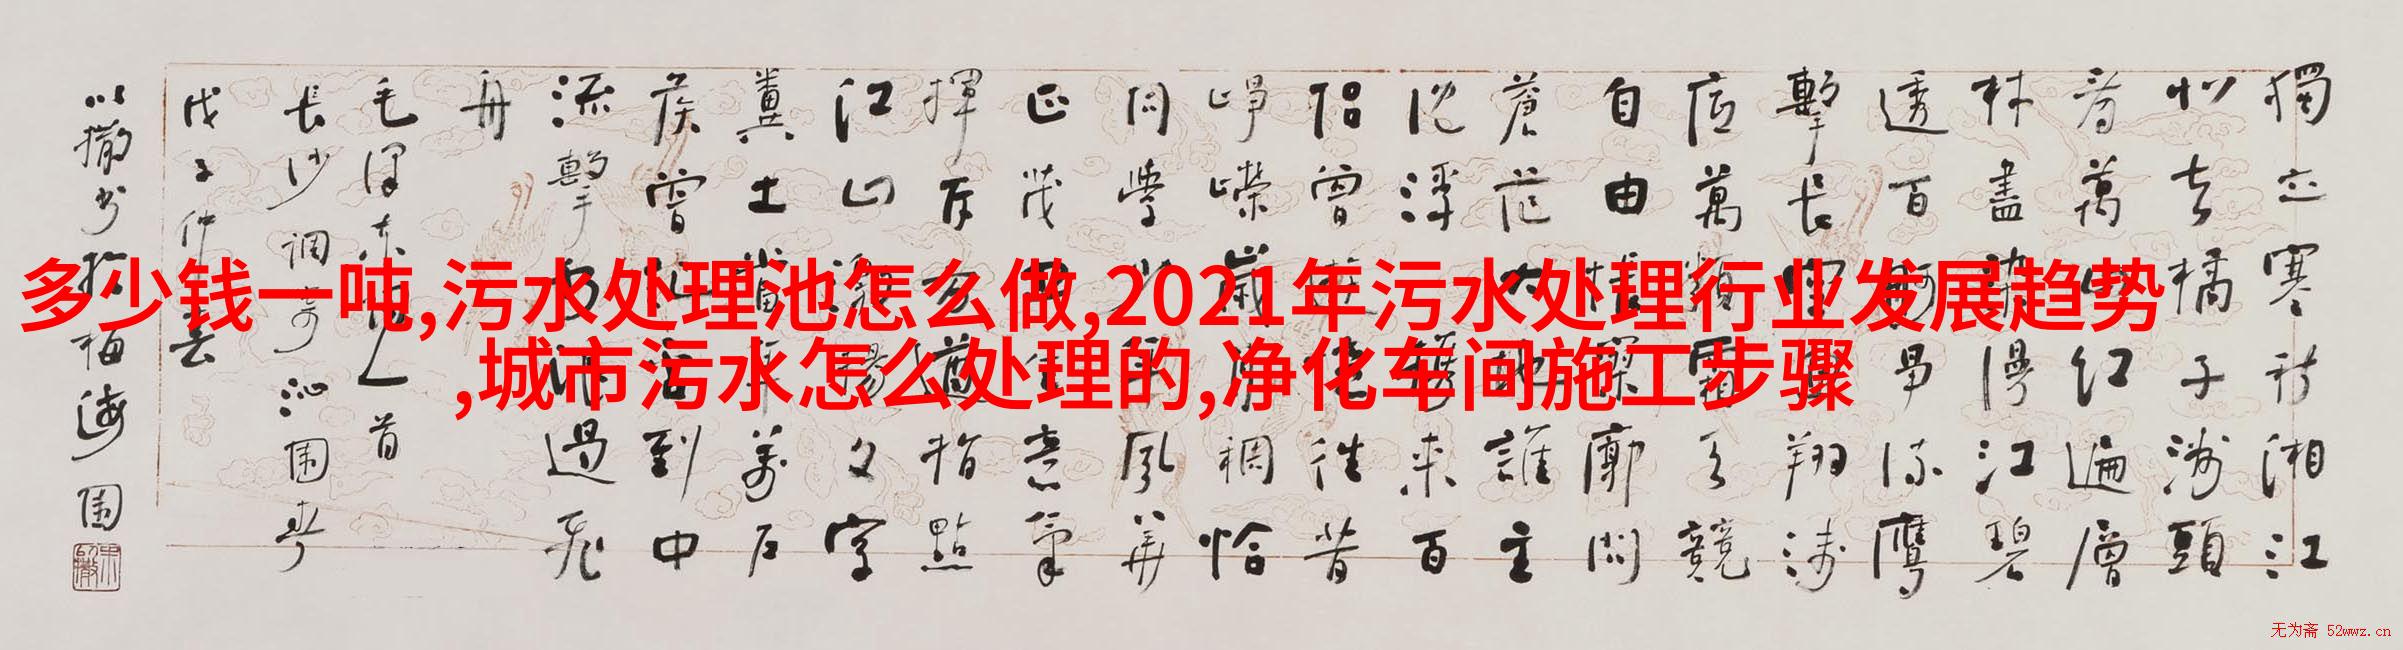 多少钱一吨,污水处理池怎么做,2021年污水处理行业发展趋势
,城市污水怎么处理的,净化车间施工步骤
獨立寒秋湘江
北去橘子洲頭
看萬山红遍層
林盡染漫江碧
透百舸爭流鷹
擊長空魚翔淺
底萬類霜天競
自由悵寥廓問
蒼茫大地誰主
沈浮攜來百
侣曾遊憶往昔
崢嶸歲月稠恰
同學少年風華
正茂書生意氣
揮斥方遒指點
江山激揚文字
糞土當年萬户
侯曾記否到中
流擊水浪遏飛
舟
毛澤東首
長沙調寄沁园春
戊子仲
以撒书於梅海園
无为斋 52wwz.cn